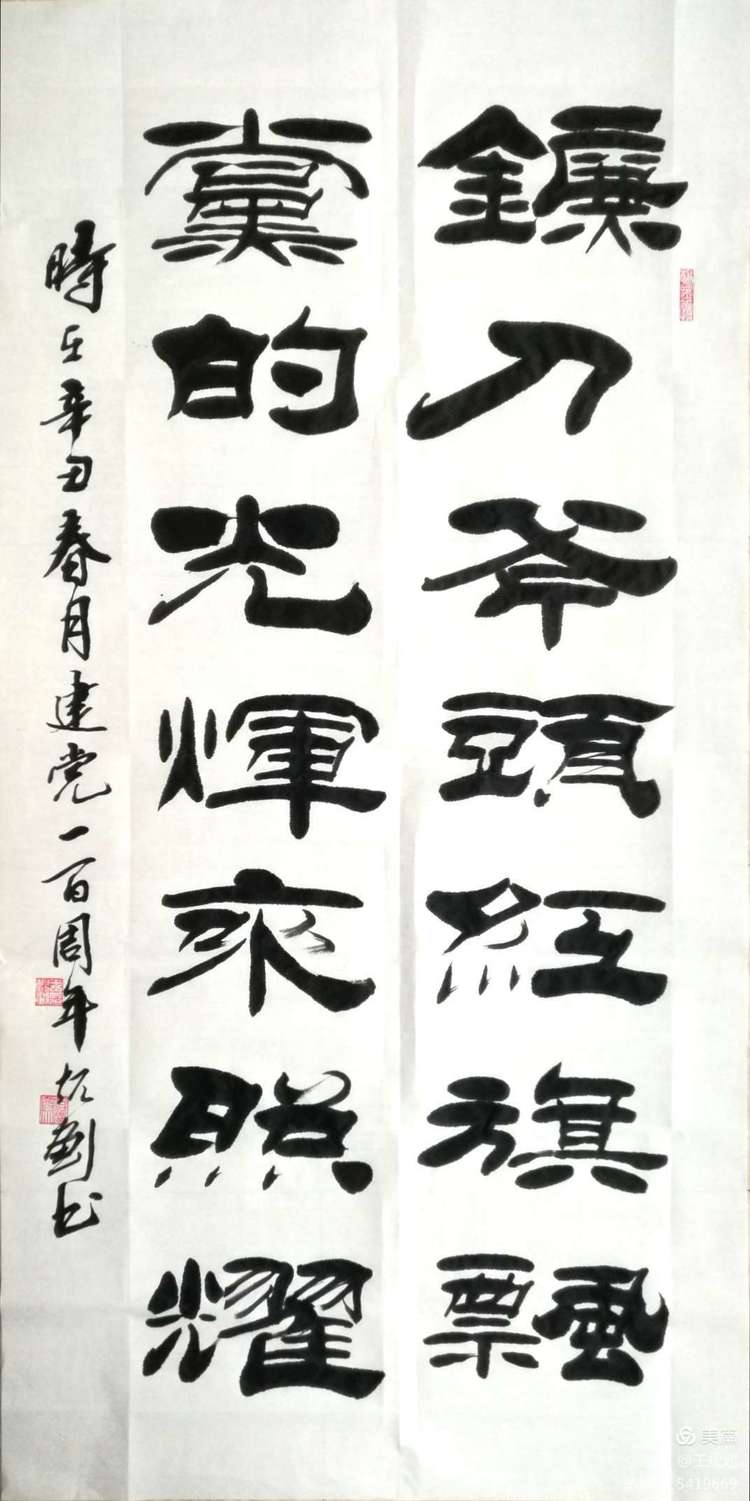 鐮刀斧頭紅旗飄
黨的光煇來照耀
時在辛丑春月建党一百周年 劍书
美篇
5419869